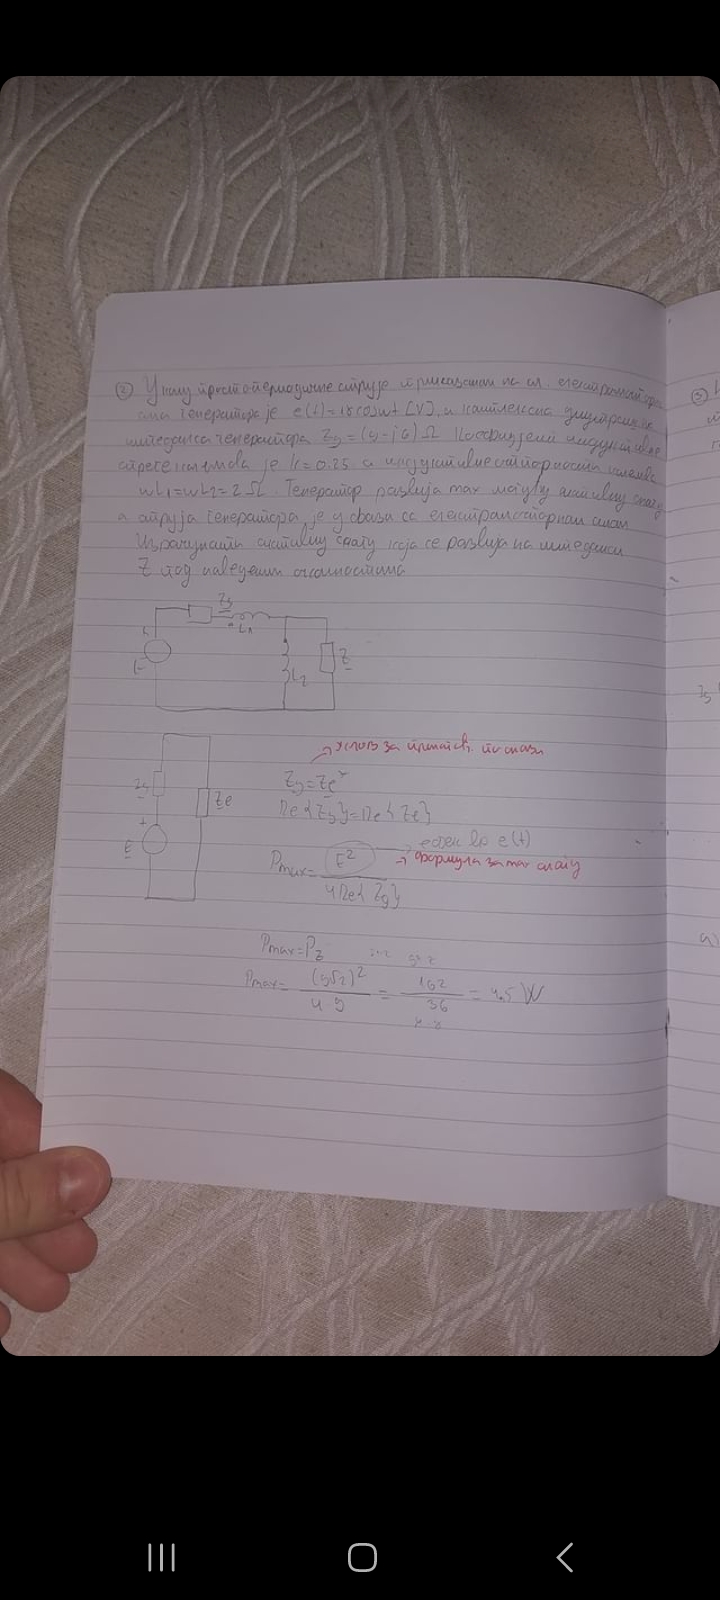 ② У колу простопериодичне струје приказаном на сл. електромоторна
сила генератора је e(t)=18cosωt [V], а комплексна
импеданса генератора Zg=(9-j6)Ω Коефицијент индуктивне
спреге калемова је k=0.25 а индуктивне отпорности калемова
ωL1=ωL2=2Ω. Генератор развија max могућу активну снагу
а струја генератора је у фази са електромоторном силом
Израчунати активну снагу која се развија на импеданси
Z под наведеним околностима
Zg
L1
E
L2
Z
услов за
Zg=Ze*
Re{Zg}=Re{Ze}
Zg
Ze
+
E
e(t)
Pmax=E²/4Re{Zg}
формула за max снагу
Pmax=Pz
Pmax=(9√2)²/4·9=162/36=4.5W
3